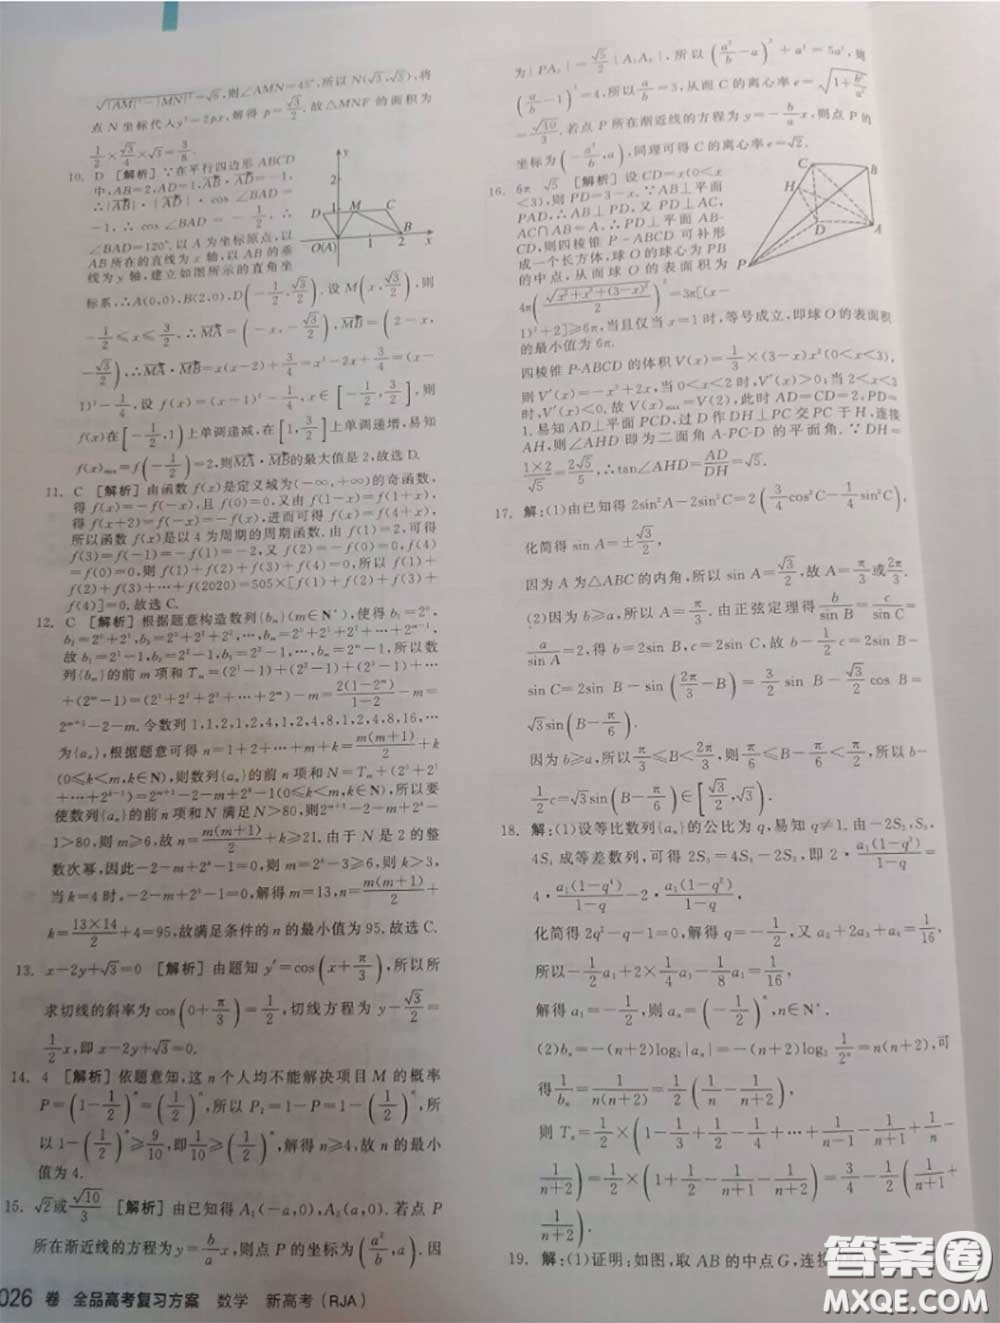 √|AM|²-|MN|²=√6,则∠AMN=45°,所以N(√3,√3),将
点N坐标代入y²=2px,解得p=√3/2.故△MNF的面积为
1/2×√3/4×√3=3/8.
10. D [解析]∵在平行四边形ABCD
中,AB=2,AD=1,AB·AD=-1,
∴|AB|·|AD|·cos∠BAD=
-1,∴cos∠BAD=-1/2,∴
∠BAD=120°,以A为坐标原点,以
AB所在的直线为x轴,以AB的垂
线为y轴,建立如图所示的直角坐
标系,∴A(0,0),B(2,0),D(-1/2,√3/2).设M(x,√3/2),则
-1/2≤x≤3/2,∴MA=(-x,-√3/2),MB=(2-x,
-√3/2),∴MA·MB=x(x-2)+3/4=x²-2x+3/4=(x-
1)²-1/4,设f(x)=(x-1)²-1/4,x∈[-1/2,3/2],则
f(x)在[-1/2,1)上单调递减,在[1,3/2]上单调递增,易知
f(x)max=f(-1/2)=2,则MA·MB的最大值是2,故选D.
11. C [解析]由函数f(x)是定义域为(-∞,+∞)的奇函数,
得f(x)=-f(-x),且f(0)=0,又由f(1-x)=f(1+x),
得f(x+2)=f(-x)=-f(x),进而可得f(x)=f(x+4),
所以函数f(x)是以4为周期的周期函数.由f(1)=2,可得
f(3)=f(-1)=-f(1)=-2,f(2)=f(0)=0,f(4)
=f(0)=0,则f(1)+f(2)+f(3)+f(4)=0,所以f(1)+
f(2)+f(3)+…+f(2020)=505×[f(1)+f(2)+f(3)+
f(4)]=0.故选C.
12. C [解析]根据题意构造数列{bₘ}(m∈N*),使得b₁=2⁰,
b₂=2⁰+2¹,b₃=2⁰+2¹+2²,…,bₘ=2⁰+2¹+…+2ᵐ⁻¹,
故b₁=2¹-1,b₂=2²-1,…,bₘ=2ᵐ-1,所以数
列{bₘ}的前m项和Tₘ=(2¹-1)+(2²-1)+…
+(2ᵐ-1)=2¹+2²+2³+…+2ᵐ-m=2(1-2ᵐ)/1-2-m=
2ᵐ⁺¹-2-m.令数列1,1,2,1,2,4,1,2,4,8,1,2,4,8,16,…
为{aₙ},根据题意可得n=1+2+…+m+k=m(m+1)/2+k
(0≤k<m,k∈N),则数列{aₙ}的前n项和N=Tₘ+(2⁰+2¹
+…+2ᵏ⁻¹)=2ᵐ⁺¹-2-m+2ᵏ-1(0≤k<m,k∈N),所以要
使数列{aₙ}的前n项和N满足N>80,则2ᵐ⁺¹-2-m+2ᵏ-
1>80,则m≥6,故n=m(m+1)/2+k≥21.由于N是2的整
数次幂,因此-2-m+2ᵏ-1=0,则2ᵏ=3+m≥9,则k>3,
当k=4时,-2-m+2ᵏ-1=0,解得m=13,n=m(m+1)/2+
k=13×14/2+4=95,故满足条件的n的最小值为95.故选C.
13. x-2y+√3=0 [解析]由题知y'=cos(x+π/3),所以所
求切线的斜率为cos(0+π/3)=1/2,切线方程为y-√3/2=
1/2x,即x-2y+√3=0.
14. 4 [解析]依题意知,这n个人均不能解决项目M的概率
P=(1-1/2)ⁿ=(1/2)ⁿ,所以P₁=1-P=1-(1/2)ⁿ,所
以1-(1/2)ⁿ≥9/10,即1/10≥(1/2)ⁿ,解得n≥4,故n的最小
值为4.
15. √2或√10/3 [解析]由已知得A₁(-a,0),A₂(a,0).若点P
所在渐近线的方程为y=b/a x,则点P的坐标为(a²/b,a).因
026 卷 全品高考复习方案 数学 新高考(RJA)
为|PA₂|=√5/2|A₁A₂|,所以(a²/b-a)²+a²=5a²,则
(a/b-1)²=4,所以a/b=3,从而C的离心率e=√1+b²/a²=
√10/3.若点P所在渐近线的方程为y=-b/a x,则点P的
坐标为(-a²/b,a),同理可得C的离心率e=√2.
16. 6π √5 [解析]设CD=x(0<x
<3),则PD=3-x.∵AB⊥平面
PAD,∴AB⊥PD,又PD⊥AC,
AC∩AB=A,∴PD⊥平面AB-
CD,则四棱锥P-ABCD可补形
成一个长方体,球O的球心为PB
的中点,从而球O的表面积为
4π(√x²+x²+(3-x)²/2)²=3π[(x-
1)²+2]≥6π,当且仅当x=1时,等号成立,即球O的表面积
的最小值为6π.
四棱锥P-ABCD的体积V(x)=1/3×(3-x)x²(0<x<3),
则V'(x)=-x²+2x,当0<x<2时,V'(x)>0;当2<
x<3时,V'(x)<0.故V(x)max=V(2),此时AD=CD=2,PD=
1.易知AD⊥平面PCD,过D作DH⊥PC交PC于H,连接
AH,则∠AHD即为二面角A-PC-D的平面角.∵DH=
1×2/√5=2√5/5,∴tan∠AHD=AD/DH=√5.
17. 解:(1)由已知得2sin²A-2sin²C=2(3/4cos²C-1/4sin²C),
化简得sin A=±√3/2,
因为A为△ABC的内角,所以sin A=√3/2,故A=π/3或2π/3.
(2)因为b≥a,所以A=π/3.由正弦定理得b/sin B=c/sin C=
a/sin A=2,得b=2sin B,c=2sin C,故b-1/2c=2sin B-
sin C=2sin B-sin(2π/3-B)=3/2sin B-√3/2cos B=
√3sin(B-π/6).
因为b≥a,所以π/3≤B<2π/3,则π/6≤B-π/6<π/2,所以b-
1/2c=√3sin(B-π/6)∈[√3/2,√3).
18. 解:(1)设等比数列{aₙ}的公比为q,易知q≠1.由-2S₂,S₃,
4S₄成等差数列,可得2S₃=4S₄-2S₂,即2·a₁(1-q³)/1-q=
4·a₁(1-q⁴)/1-q-2·a₁(1-q²)/1-q,
化简得2q²-q-1=0,解得q=-1/2,又a₂+2a₃+a₄=1/16,
所以-1/2a₁+2×1/4a₁-1/8a₁=1/16,
解得a₁=-1/2,则aₙ=(-1/2)ⁿ,n∈N*.
(2)bₙ=-(n+2)log₂|aₙ|=-(n+2)log₂ 1/2ⁿ=n(n+2),可
得1/bₙ=1/n(n+2)=1/2(1/n-1/n+2),
则Tₙ=1/2×(1-1/3+1/2-1/4+…+1/n-1-1/n+1+1/n
-1/n+2)=1/2×(1+1/2-1/n+1-1/n+2)=3/4-1/2(1/n+1+
1/n+2).
19. 解:(1)证明:如图,取AB的中点G,连接
y
2
1
D
M
C
O(A)
1
2
B
x
C
B
H
D
A
P
答案圈
MXQE.COM